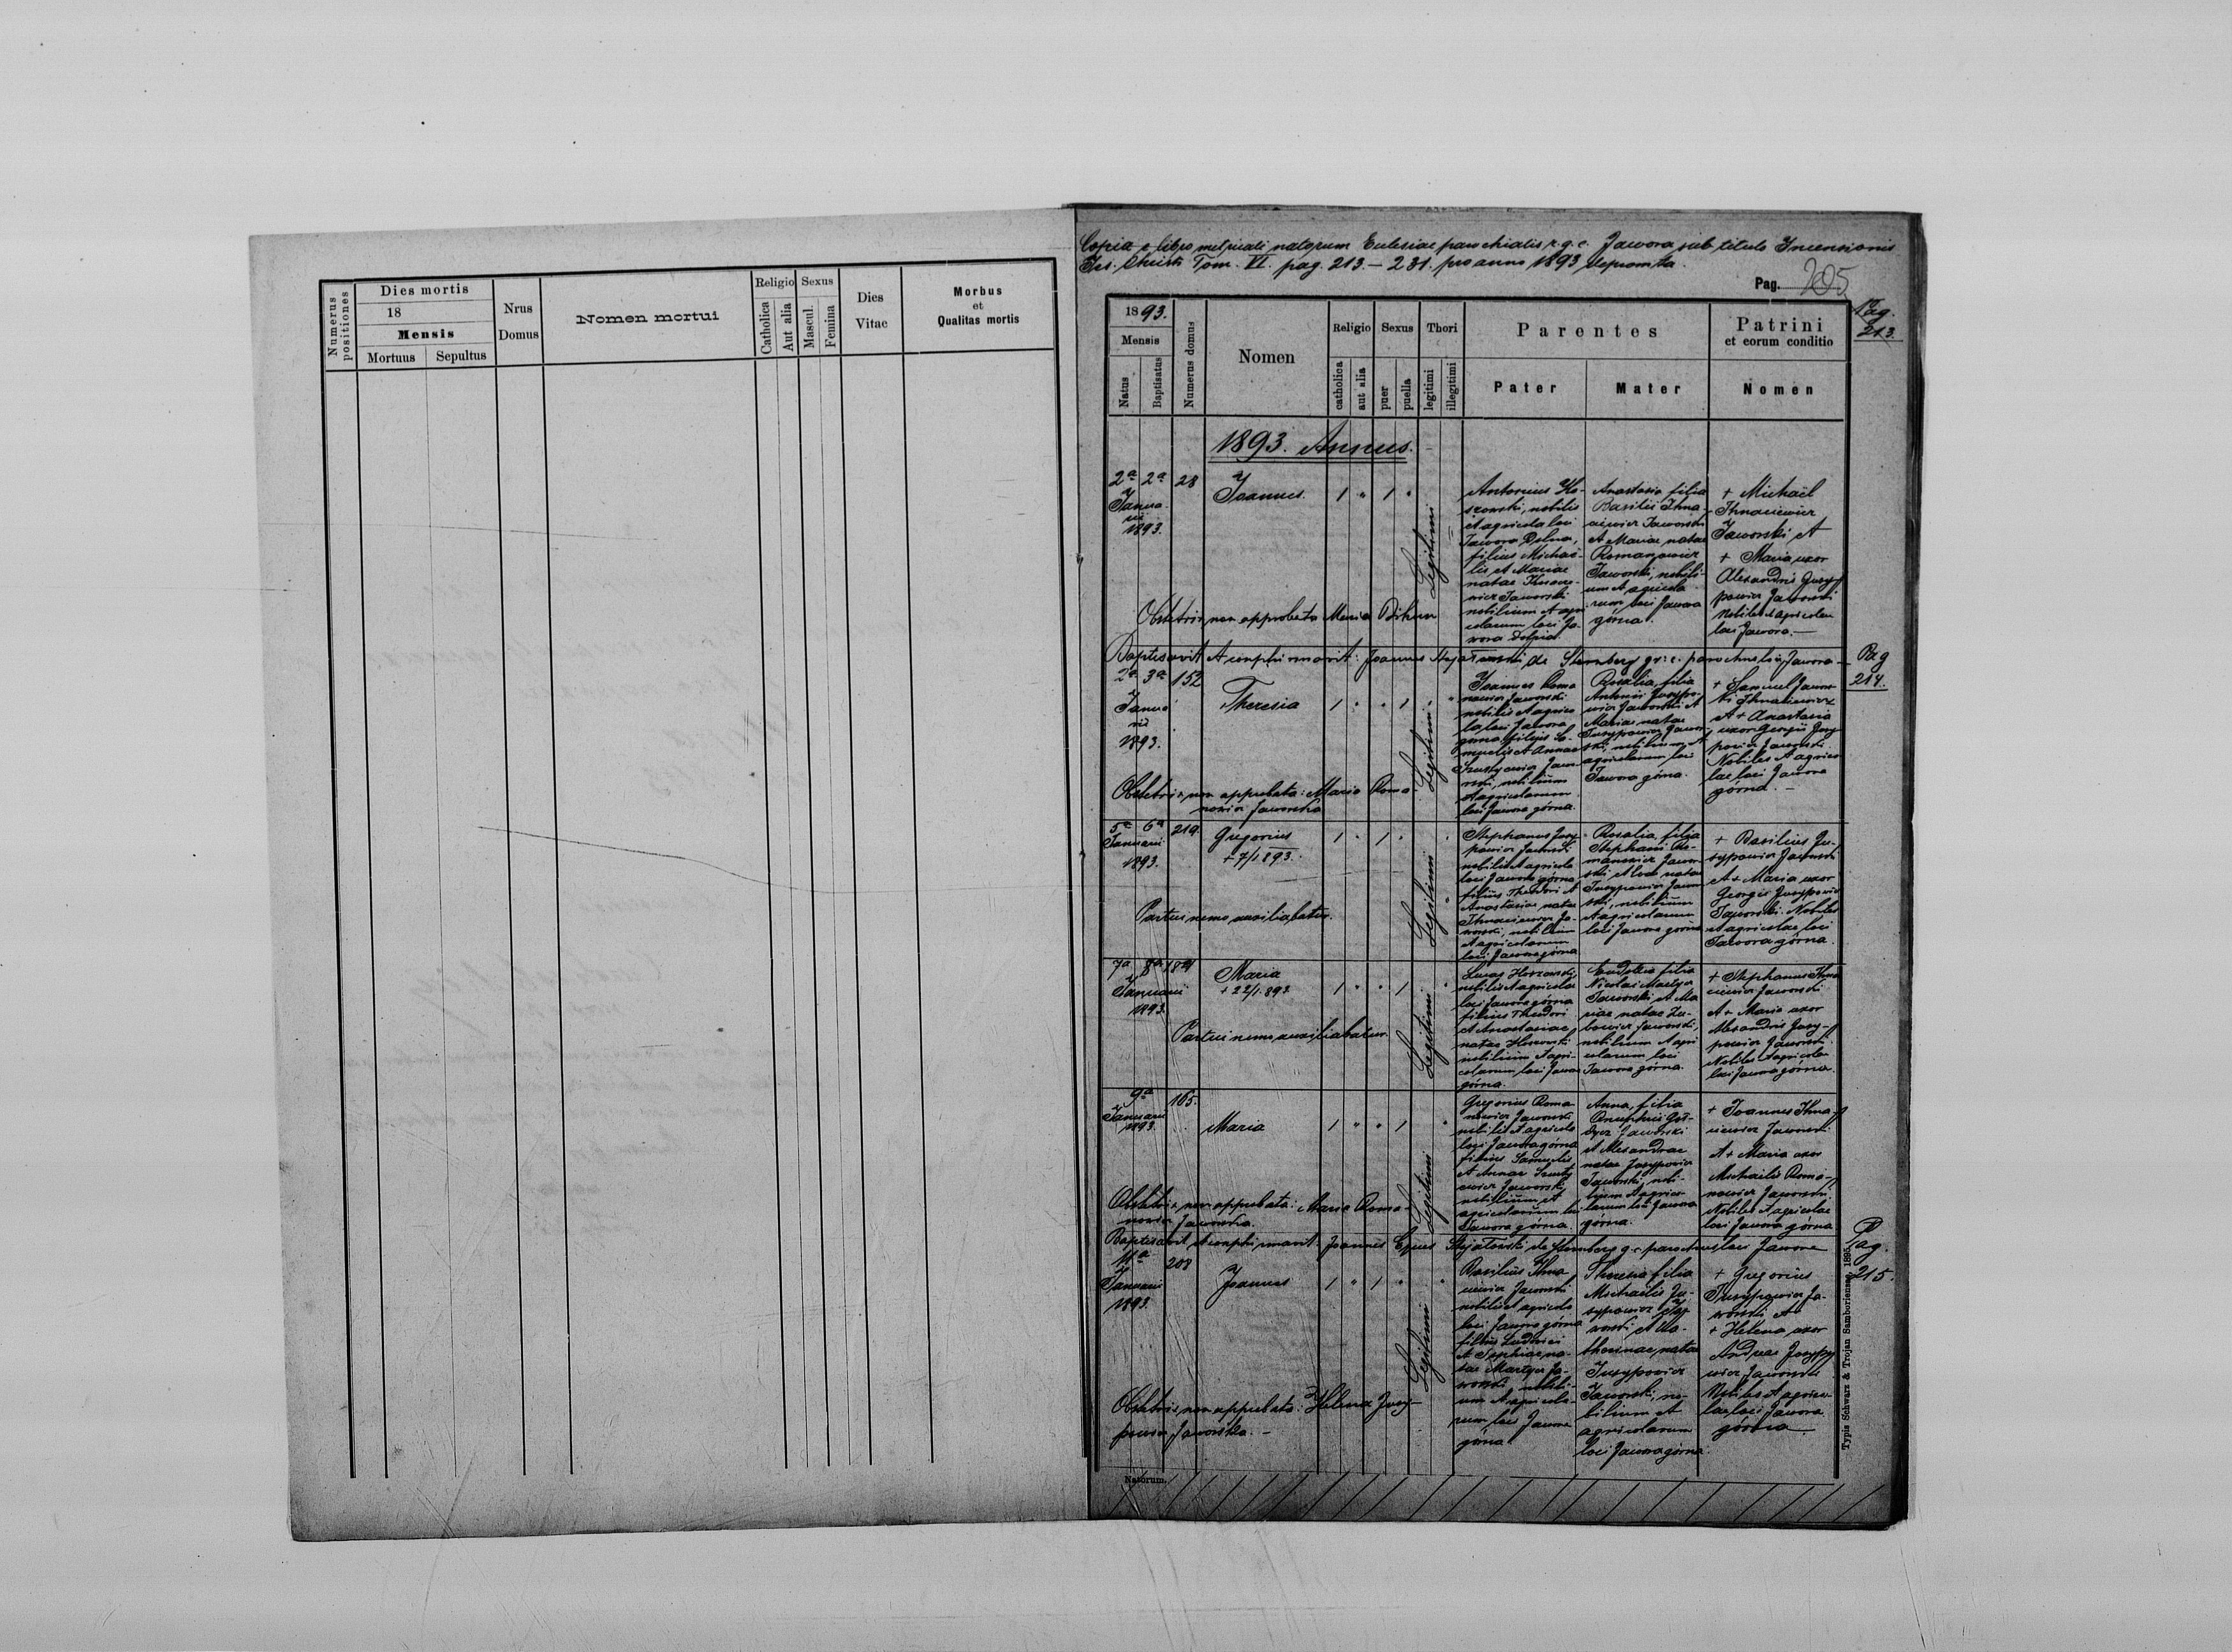 Numerus positiones
Dies mortis
18
Mensis
Mortuus
Sepultus
Nrus
Domus
Nomen mortui
Religio
Sexus
Catholica
Aut alia
Mascul.
Femina
Dies
Vitae
Morbus
et
Qualitas mortis
Copia e libro metricali natorum Eclesiae parochialis r. g. c. Jawora sub titulo
Christi Tom. VI. pag. 213. — 231. pro anno 1893 depromta.
Pag. 205
Pag.
213.
1893.
Mensis
Natus
Baptisatus
Numerus domus
Nomen
Religio
Sexus
Thori
catholica
aut alia
puer
puella
legitimi
illegitimi
Parentes
Pater
Mater
Patrini
et eorum conditio
Nomen
1893. Annus.
2a 2a 28
Janua-
rii
1893.
Joannes 1 " 1 "
Legitimi
Antonius
nobilis
et agricola loci
Jawora Dolna,
filius Michaë-
lis et Mariae
natae
Jaworski
nobilium et agri-
colarum loci Ja-
wora
Anastasia filia
Basilii Ihna-
ciewicz Jaworski
et Mariae natae
Romanowicz
Jaworski, nobili-
um et agricola-
rum loci Jawora
górna.
+ Michaël
Ihnaciewicz
Jaworski et
+ Maria uxor
Alexandri Jusyp-
powicz Jaworski
Nobiles et agricolae
loci Jawora. —
Obstetrix non approbata Maria
Baptisavit et confirmavit: Joannes de Sternberg gr: c. parochus loci Jawora
Pag
214.
2a 3a 152
Janua
rii
1893.
Theresia 1 " " 1 "
Legitimi
Joannes Roma
nowicz Jaworski
nobilis et agrico
la loci Jawora
górna filius Sa-
muelis et Annae
Jawor-
ski, nobilium
et agricolarum
loci Jawora górna.
Rosalia, filia
Antonii Jusypo-
wicz Jaworski et
Mariae natae
Jusypowicz Jawor-
ski, nobilium et
agricolarum loci
Jawora górna.
+ Samuel Jawor-
ski Ihnaciewicz
et + Anastasia
uxor Georgii Jusy-
powicz Jaworski
Nobiles et agrico
lae loci Jawora
górna. —
Obstetrix non approbata: Maria Roma-
nowicz Jaworska
5a 6a 219.
Januarii
1893.
Gregorius 1 " 1 " "
+ 7/I 893.
Legitimi
Stephanus Jusy-
powicz Jaworski
nobilis et agricola
loci Jawora górna
filius Theodori et
Anastasiae natae
Ihnaciewicz Ja-
worski, nobilium
et agricolarum
loci Jawora górna
Rosalia, filia
Stephani Ro-
manowicz Jawor-
ski et natae
Jusypowicz Jawor
ski, nobilium
et agricolarum
loci Jawora górna
+ Basilius Ju-
sypowicz Jaworski
et + Maria uxor
Georgii Jusypowicz
Jaworski. Nobiles
et agricolae loci
Jawora górna.
Partui nemo auxiliabatur.
7a 8a
Januarii
1893.
Maria 1 " " 1 "
+ 22/I 893
Legitimi
Lucas
nobilis et agricola
loci Jawora górna
filius Theodori
et Anastasiae
natae
nobilium et agri-
colarum loci Jawora
górna.
Eudokia filia
Nicolai Martycz
Jaworski et Ma
riae natae
Jaworski,
nobilium et agri
colarum loci
Jawora górna.
+ Stephanus Ihna
ciewicz Jaworski
et + Maria uxor
Alexandri Jusy-
powicz Jaworski.
Nobiles et agricolae
loci Jawora górna.
Partui nemo auxiliabatur.
9a 165.
Januarii
1893.
Maria 1 " " 1 "
Legitimi
Gregorius Roma
nowicz Jaworski
nobilis et agricola
loci Jawora górna
filius Samuelis
et Annae
Jaworski
nobilium et
agricolarum loci
Jawora górna.
Anna, filia
Onuphrii
Jaworski
et Alexandrae
natae Jusypowicz
Jaworski nobi-
lium et agrico-
larum loci Jawora
górna.
+ Joannes Ihna-
ciewicz Jaworski
et + Maria uxor
Michaëlis Roma-
nowicz Jaworski.
Nobiles et agricolae
loci Jawora górna
Obstetrix non approbata: Maria Roma-
nowicz Jaworska.
Baptisavit et confirmavit: Joannes Eques de Sternberg g. c. parochus loci Jawora
Pag.
215.
11a 208
Januarii
1893.
Joannes 1 " 1 " "
Legitimi
Basilius Ihna
ciewicz Jaworski
nobilis et agricola
loci Jawora górna
filius Ludovici
et Sophiae na-
tae Martycz Ja-
worski nobili-
um et agricola-
rum loci Jawora
górna
Theresia filia
Michaëlis Ju-
sypowicz Ja-
worski et Ca-
therinae, natae
Jusypowicz
Jaworski, no-
bilium et
agricolarum
loci Jawora górna.
+ Gregorius
Jusypowicz Ja-
worski et
+ Helena uxor
Andreae Jusypo-
wicz Jaworski
Nobiles et agrico-
lae loci Jawora
górna
Obstetrix non approbata: Helena Jusy-
powicz Jaworska. —
Natorum.
Typis Schwarz & Trojan Samboriensae, 1895.